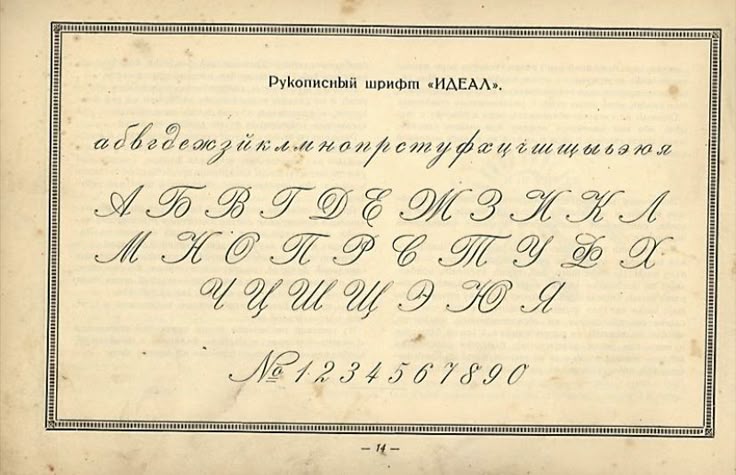 Рукописный шрифт «ИДЕАЛ».
абвгдежзийклмнопрстуфхцчшщыьэюя
А Б В Г Д Е Ж З И К Л
М Н О П Р С Т У Ф Х
Ч Ц Ш Щ Э Ю Я
№ 1 2 3 4 5 6 7 8 9 0
— 14 —